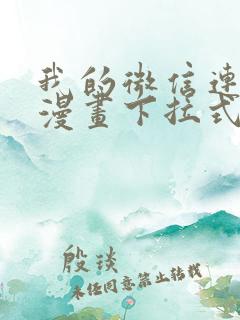 我的微信連
漫畫下拉式
殷琰
未经同意禁止转载